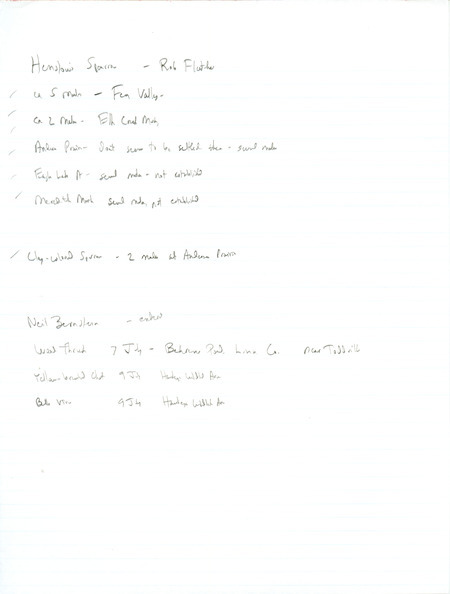 Henslow's Sparrow - Rob Fletcher
ca 5 males - Fen Valley
ca 2 males - Elk Creek Marsh
Anderson Prairie - Dont seem to be settled there - several males
Eagle Lake - several males - not established
Meredith Marsh several males, not established
Clay-colored Sparrow - 2 males at Anderson Prairie
Neil Bernstein -
Wood Thrush 7 July - Road, Linn Co. near Toddville
Yellow-breasted Chat 9 July Wildlife Area
Bell's Vireo 9 July Wildlife Area